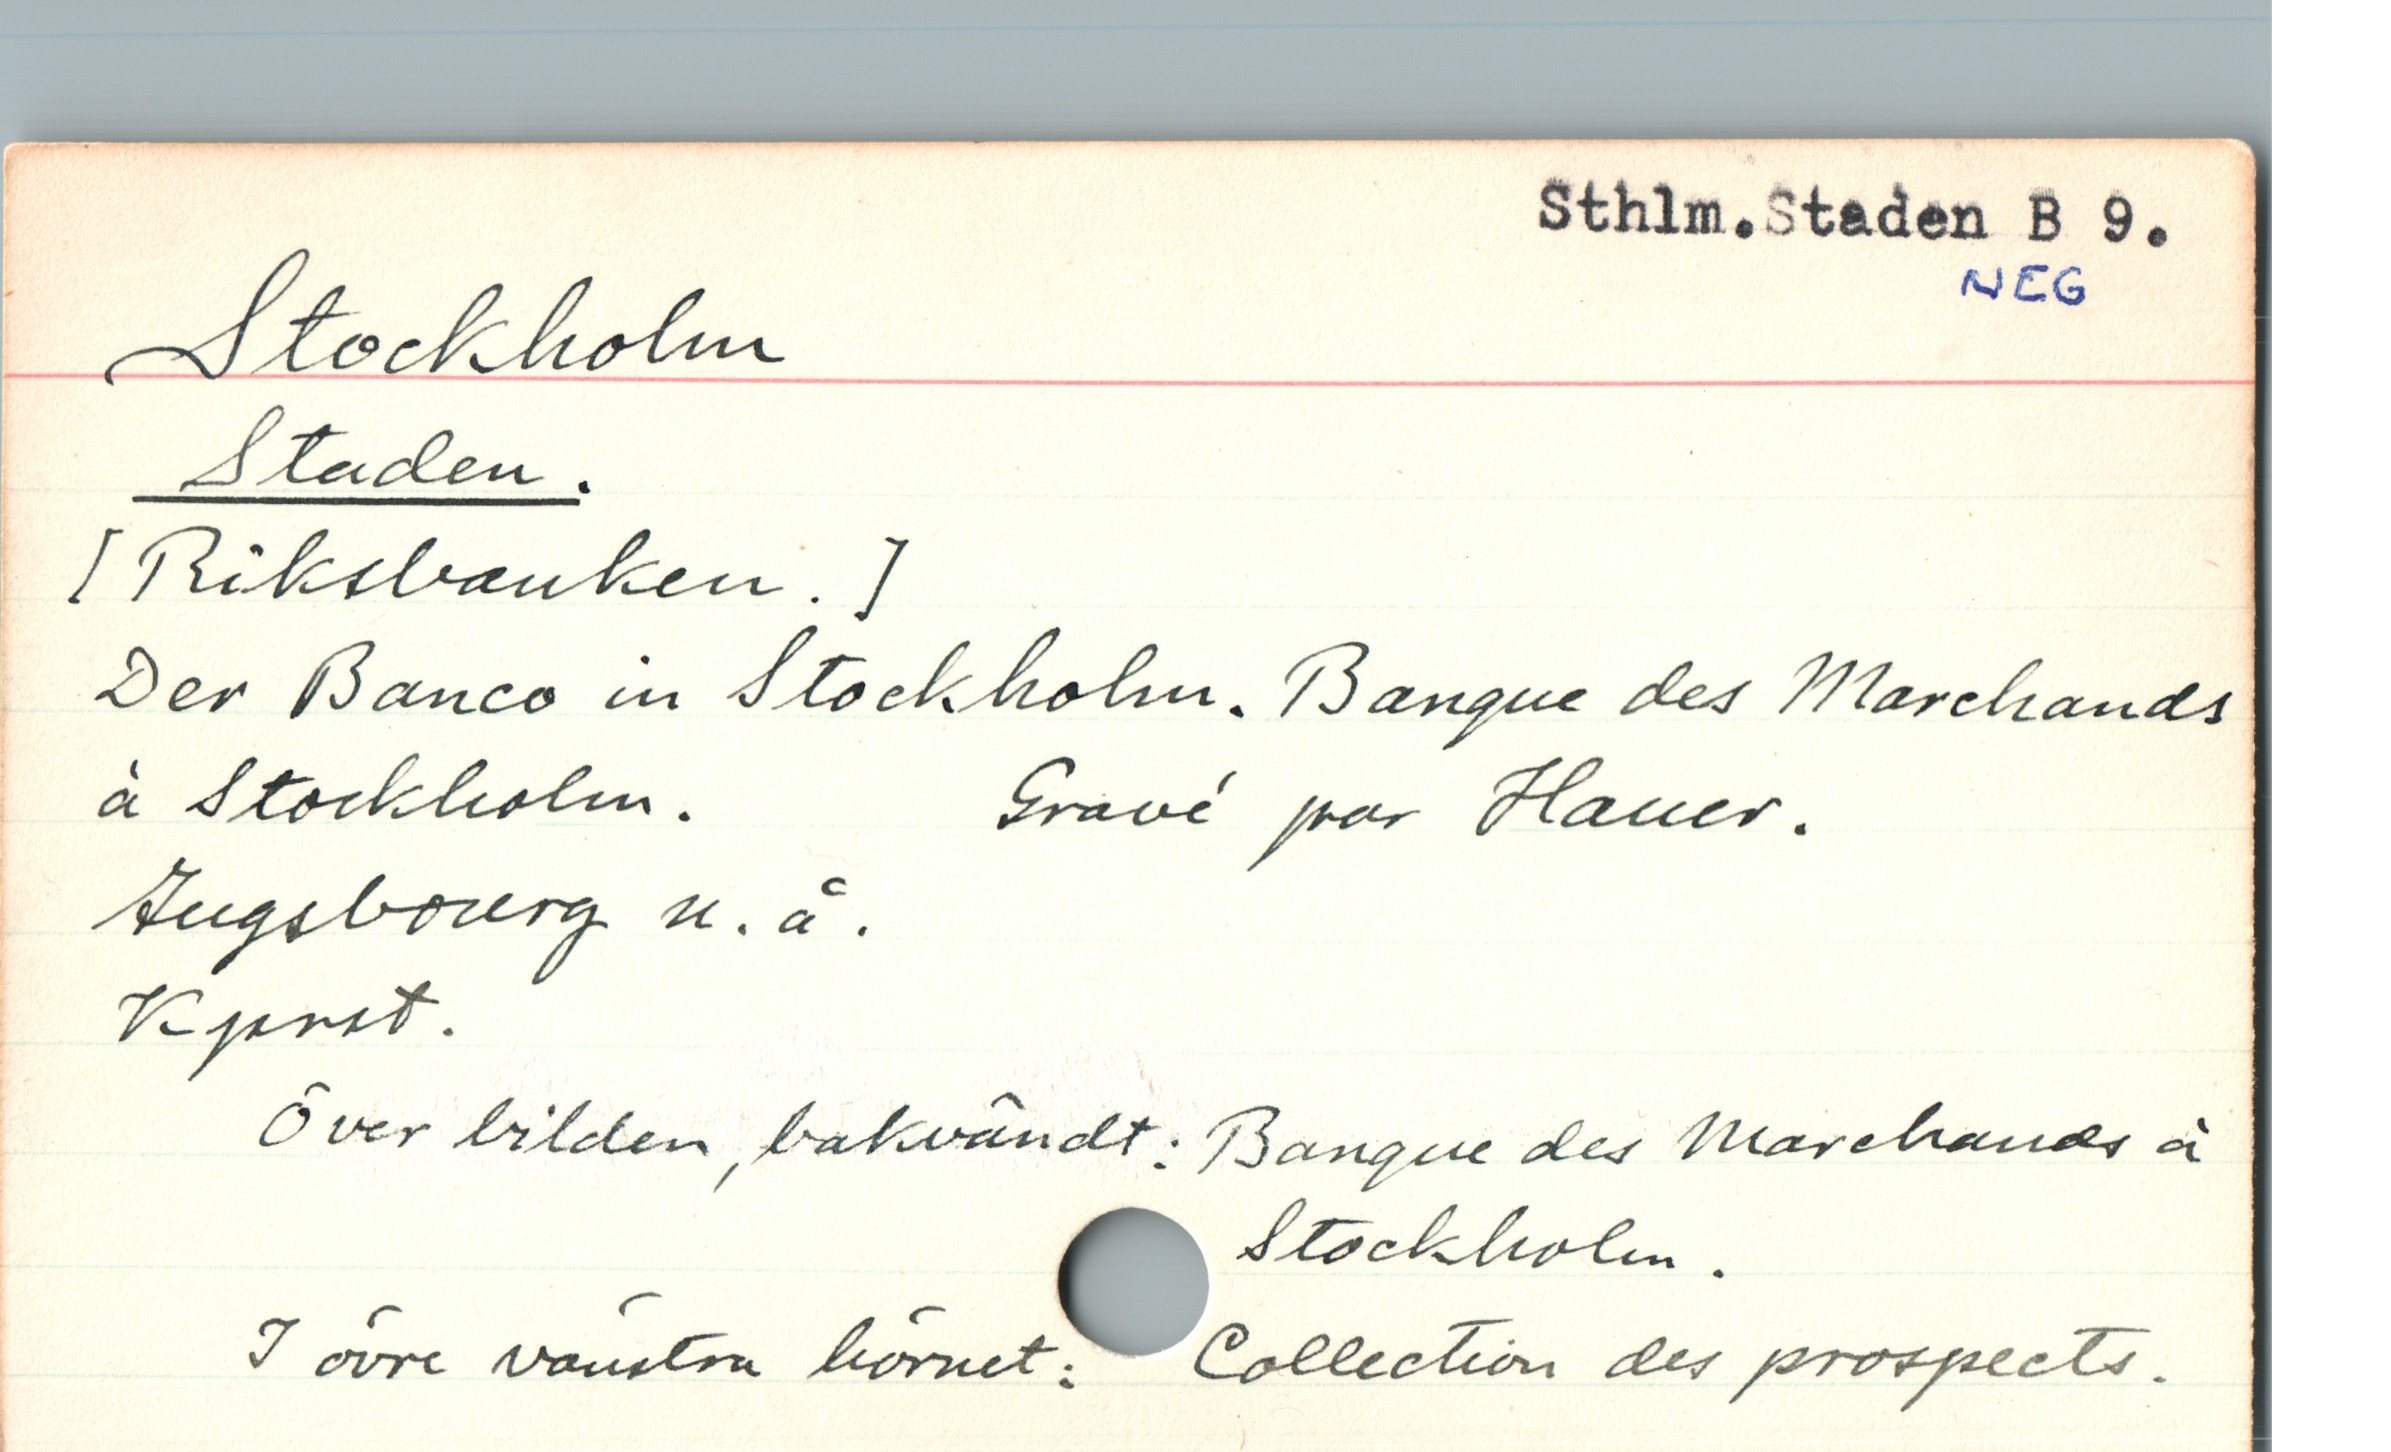 Sthlm.Staden B 9.
NEG
Stockholm
Staden.
[Riksbanken.]
Der Banco in Stockholm. Banque des Marchands
à Stockholm. Gravé par Hauer.
Augsbourg u. å.
Kprst.
Över bilden, bakvändt: Banque des Marchands à
Stockholm.
I övre vänstra hörnet: Collection des prospects.